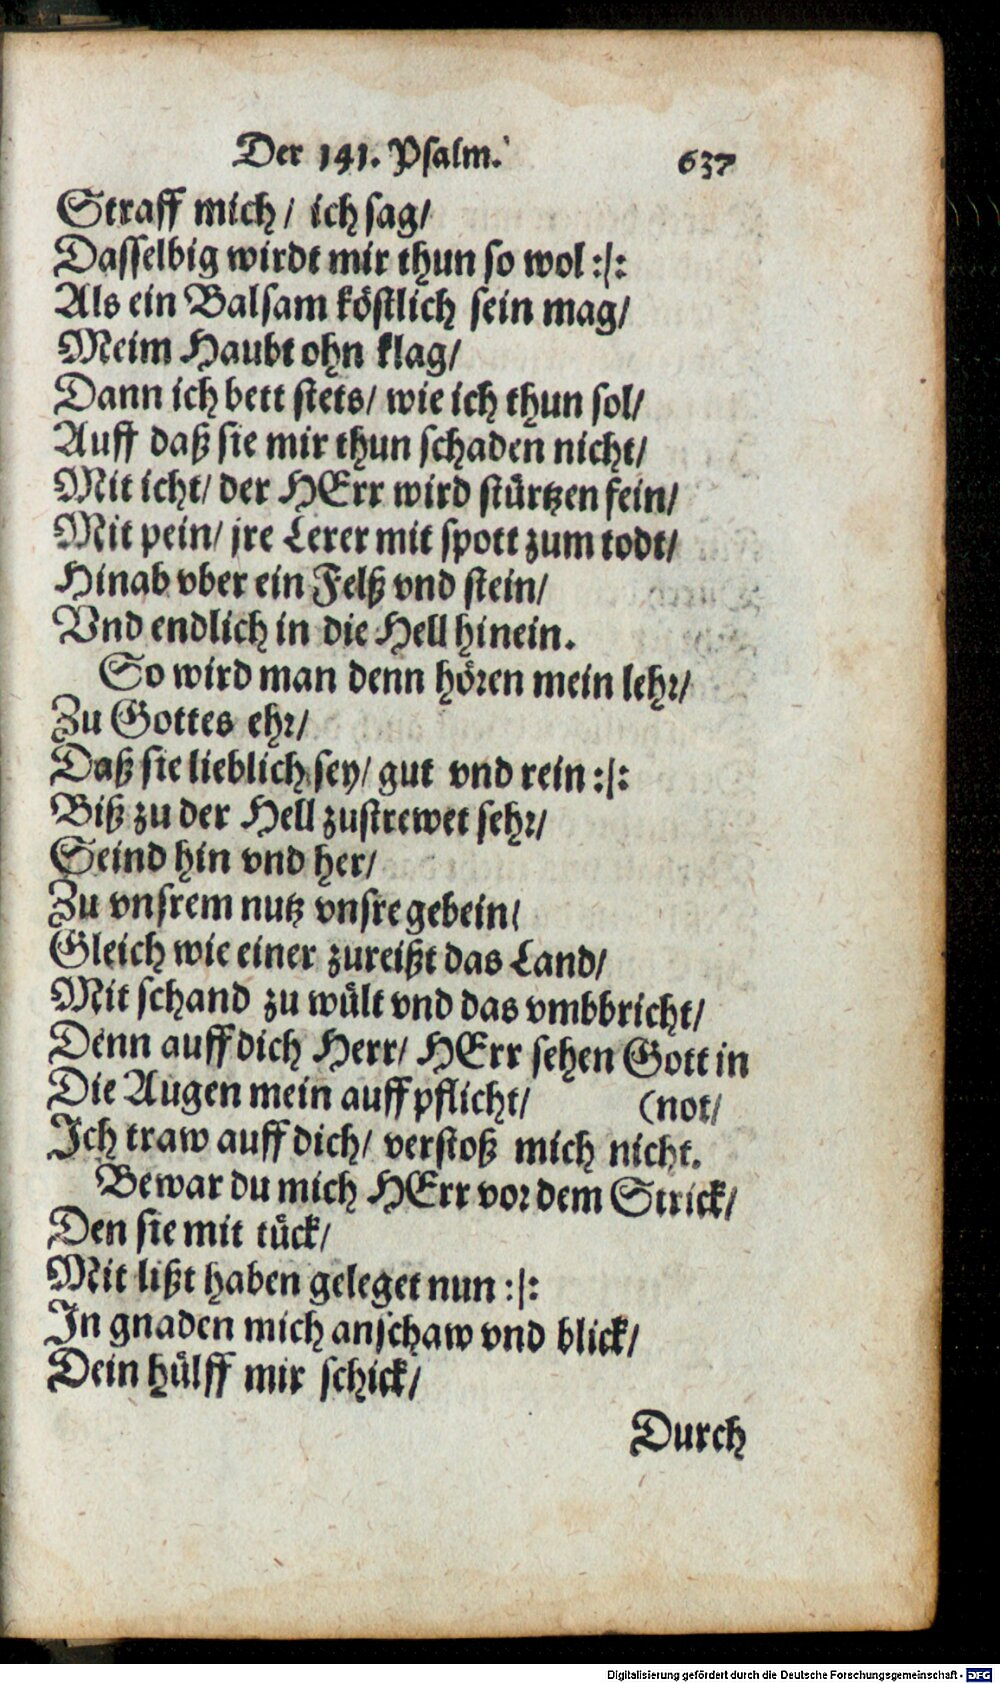 Der 141. Psalm. 637
Straff mich / ich sag /
Dasselbig wirdt mir thun so wol :/:
Als ein Balsam köstlich sein mag /
Meim Haubt ohn klag /
Dann ich bett stets / wie ich thun sol /
Auff daß sie mir thun schaden nicht /
Mit icht / der HErr wird stürtzen fein /
Mit pein / jre Lerer mit spott zum todt /
Hinab vber ein Felß vnd stein /
Vnd endlich in die Hell hinein.
So wird man denn hören mein lehr /
Zu Gottes ehr /
Daß sie lieblich sey / gut vnd rein :/:
Biß zu der Hell zustrewet sehr /
Seind hin vnd her /
Zu vnsrem nutz vnsre gebein /
Gleich wie einer zureißt das Land /
Mit schand zu wült vnd das vmbbricht /
Denn auff dich Herr / HErr sehen Gott in
Die Augen mein auff pflicht / (not /
Ich traw auff dich / verstoß mich nicht.
Bewar du mich HErr vor dem Strick /
Den sie mit tück /
Mit lißt haben geleget nun :/:
In gnaden mich anschaw vnd blick /
Dein hülff mir schick /
Durch
Digitalisierung gefördert durch die Deutsche Forschungsgemeinschaft - DFG